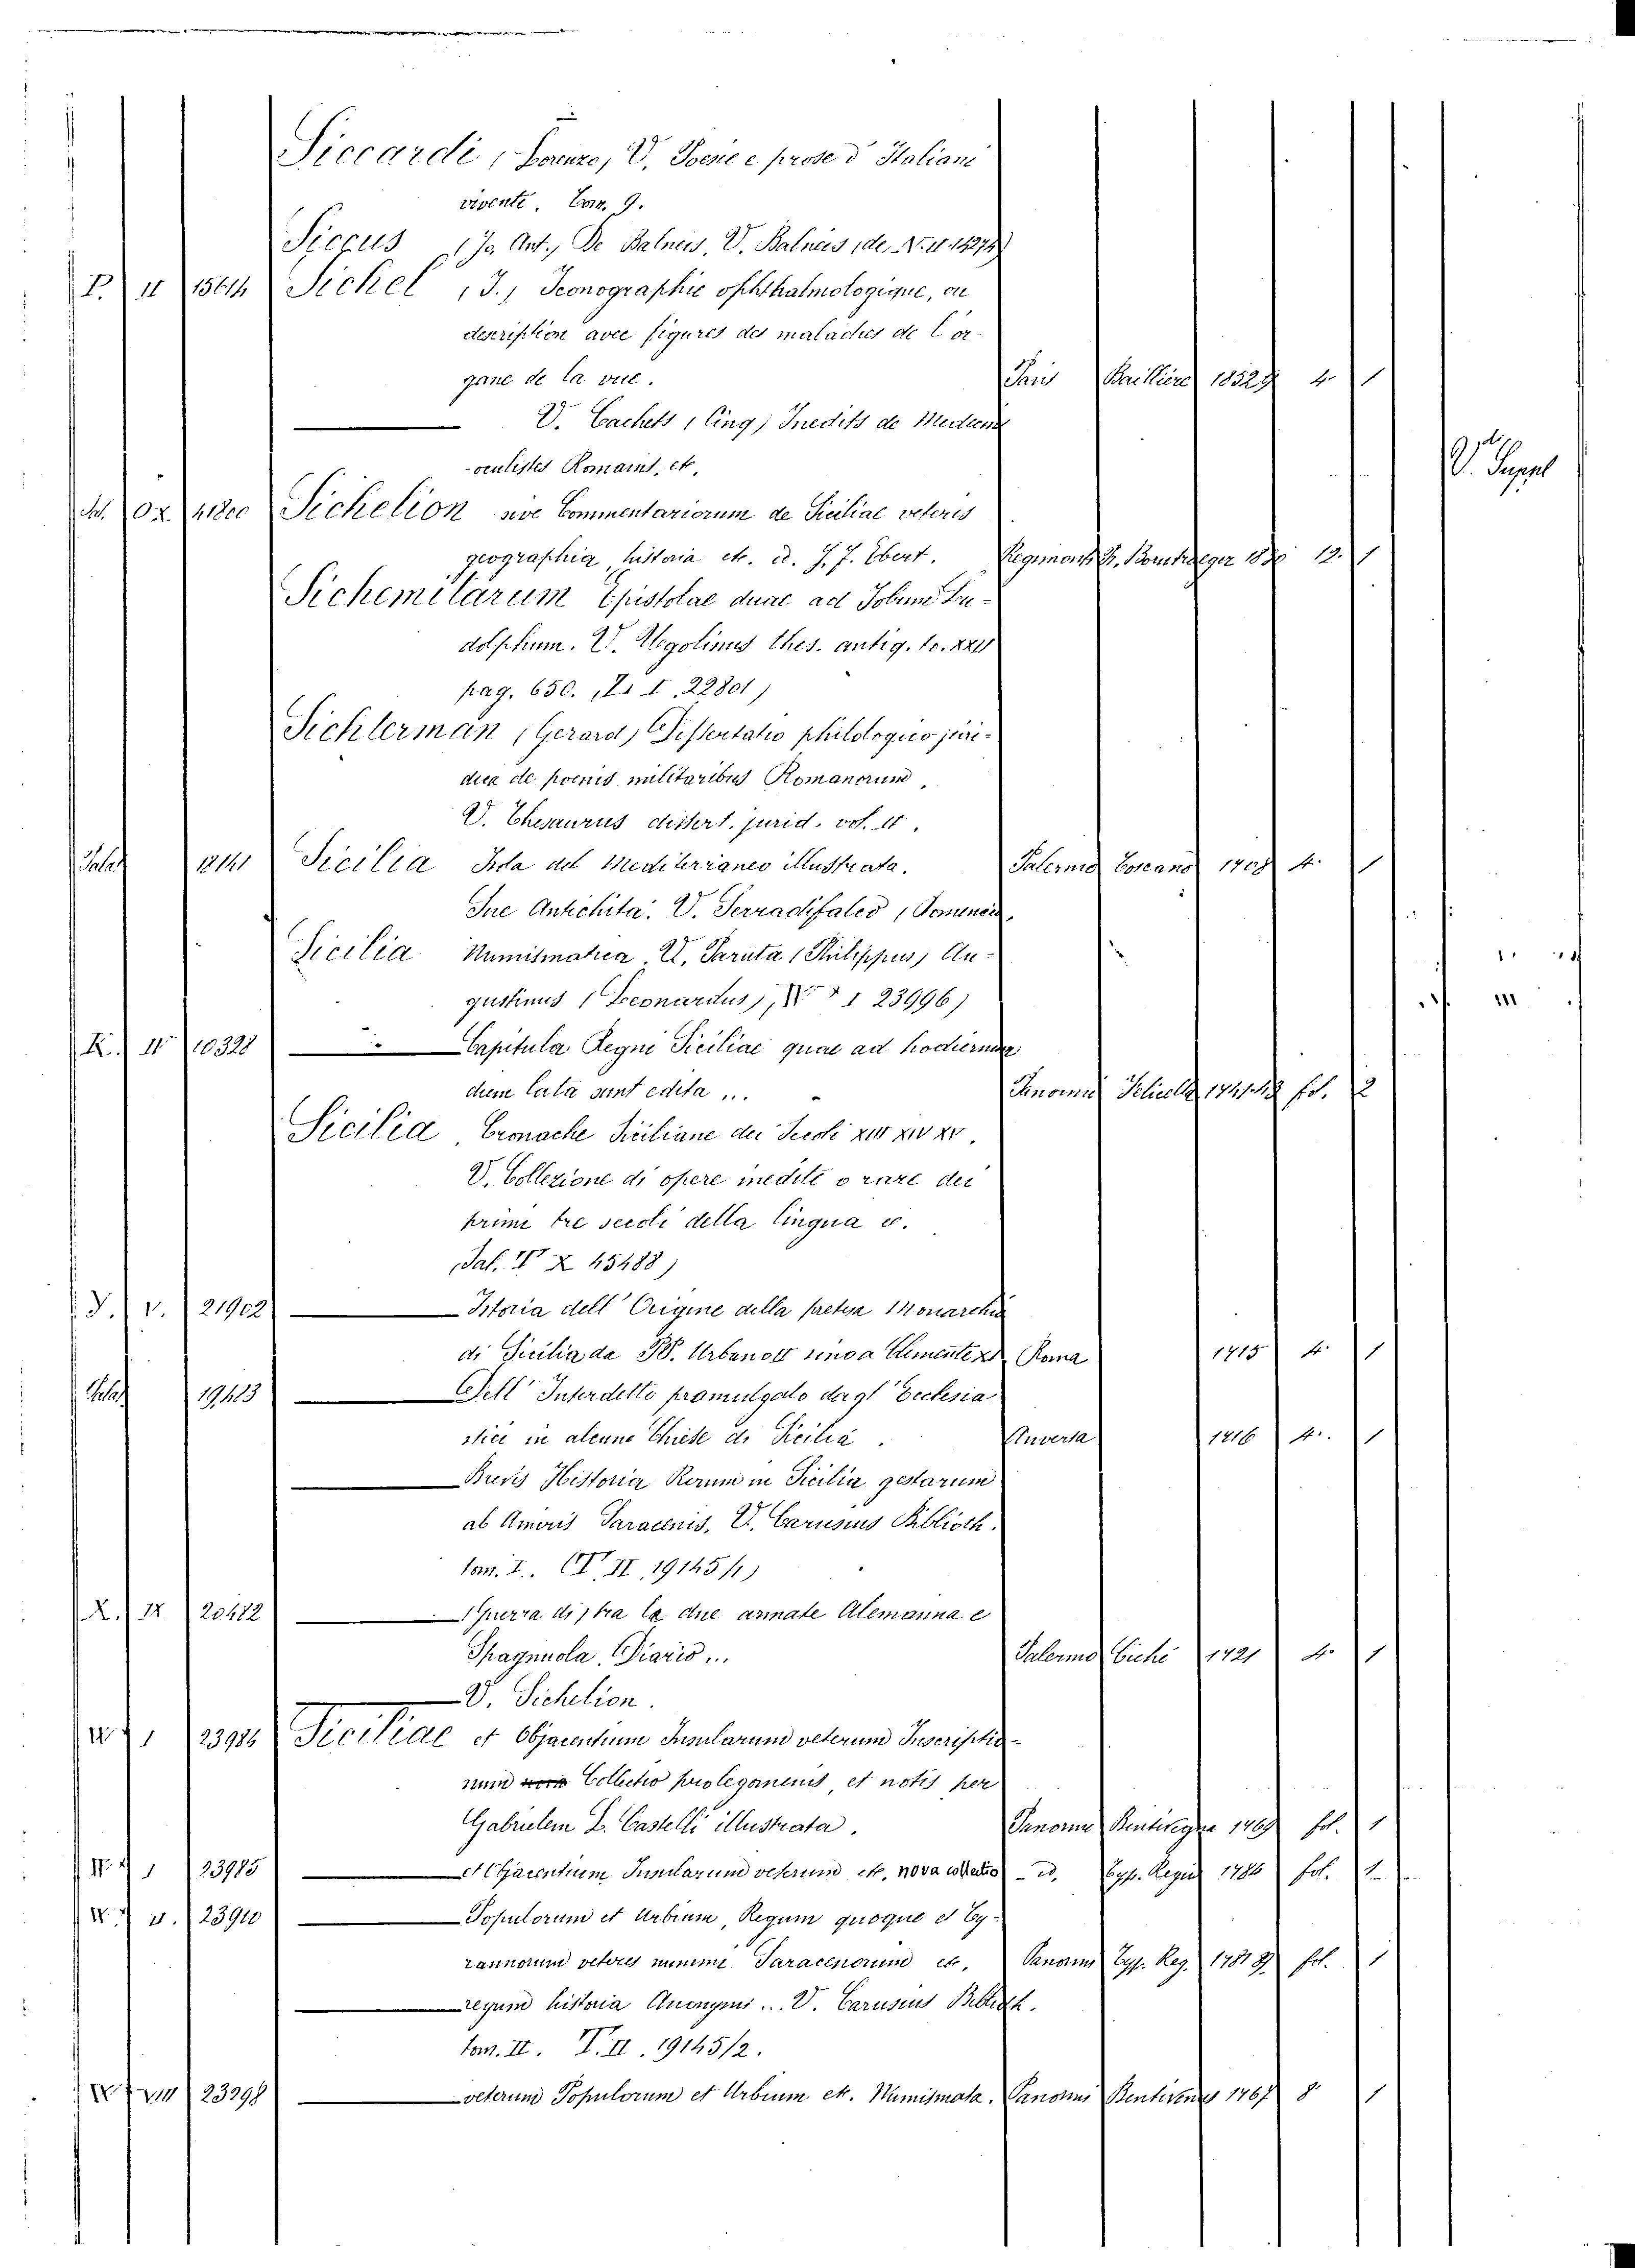 Siccardi (Lorenzo) V. Poesie e prose d'Italiani
viventi. Tom. 9.
Siccus (Jo. Ant.) De Balneis. V. Balneis (de)
P. II 15614 Sichel (J.) Iconographie ophthalmologique, ou
description avec figures des maladies de l'or-
gane de la vue. Paris Bailliere 1852 4. 1
V. Cachets (Cinq) Inedits de Medecins
-oculistes Romains, etc. V. Suppl
Sal. 41800 Sichelion sive Commentariorum de Siciliae veteris
geographia, historia etc. ed. J. J. Ebert. Regimonti Pr. Borntraeger 1830 12. 1
Sichemitarum Epistolae duae ad Jobum Lu-
dolphum. V. Ugolinus thes. antiq. to. XXII
pag. 650. 22801)
Sichterman (Gerard) Dissertatio philologico juri-
dica de poenis militaribus Romanorum.
V. Thesaurus dissert. jurid. vol. II.
Salaf 18141 Sicilia Isola del Mediterraneo illustrata. Palermo Toscano 1708 4. 1
Sue Antichita. V. Serradifalco (Domenico)
Sicilia Numismatica. V. Paruta (Philippus) Au-
gustinus (Leonardus) I 23996)
K. II 10328 Capitula Regni Siciliae quae ad hodiernum
diem lata sunt edita ... Panormi Felicella fol. 2
Sicilia Cronache Siciliane dei Secoli XIII XIV XV.
V. Collezione di opere inedite o rare dei
primi tre secoli della lingua
Sal. X 45488)
V. 21902 Istoria dell'Origine della pretesa Monarchia
di Sicilia da Urbano II sino a Clemente XI Roma 1715 4. 1
Salaf 19423 Dell'Interdetto promulgato dagl'Ecclesia
stici in alcune Chiese di Sicilia. Anversa 1716 4. 1
Brevis Historia Rerum in Sicilia gestarum
ab Amoris Saracenis. V. Carusius Biblioth.
tom. I. II, 19145/1)
X. IX 20412 (Guerra di) tra le due armate Alemanna e
Spagnuola. Diario... Palermo Cichè 1721 4. 1
V. Sichelion.
I 23984 Siciliae et Objacentium Insularum veterum Inscriptio-
num Collectio prolegomenis, et notis per
Gabrielem L. Castelli illustrata. Panormi Bentivegna 1769 fol. 1
I 23985 et Objacentium Insularum veterum etc. nova collectio - id. Typ. Regiis 1784 fol. 1
23910 Populorum et Urbium, Regum quoque et Ty-
rannorum veteres nummi Saracenorum etc. Panormi Typ. Reg. 1781 fol. 1
regum historia Anonymi... V. Carusius Biblioth.
tom. II. T. II. 19145/2.
VIII 23298 veterum Populorum et Urbium etc. Numismata. Panormi 1767 8. 1